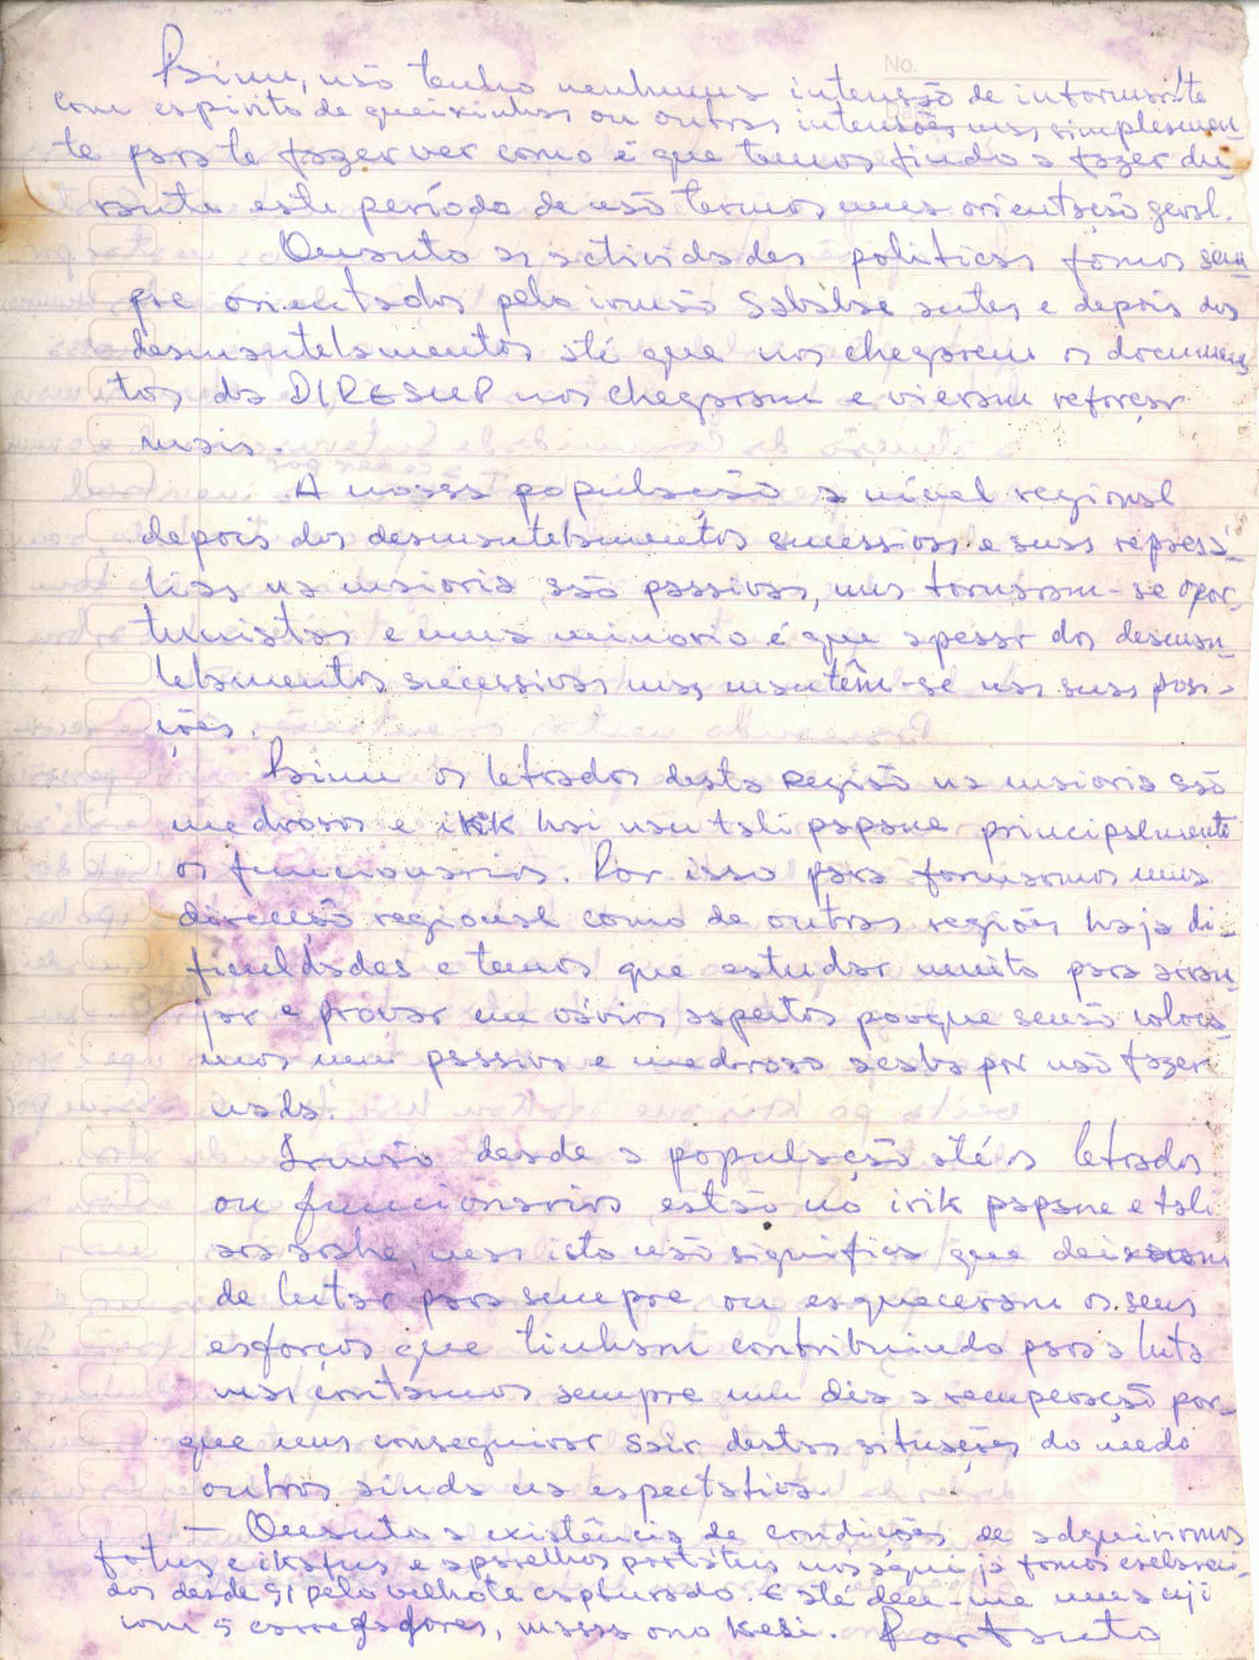 No.
Binu, não tenho nenhuma intensão de informar-te
com espirito de queixinhas ou outras intensões mas simplesmen-
te para te fazer ver como é que temos findo a fazer du-
rante este período de não termos uma orientação geral.
Quanto as actividades politicas fomos sem-
pre orientados pelo irmão Sabalae antes e depois dos
desmantelamentos até que nos chegarem os documen-
tos da DIRESUP nos chegaram e vieram reforçar
mais.
A nossa população a nível regional
depois dos desmantelamentos sucessivos e suas represá-
lias na maioria são passivas, uns tornaram-se opor-
tunistas e uma minoria é que apesar dos desman-
telamentos sucessivos mas mantêm-se nas suas posi-
ções.
Binu os letrados desta Região na maioria são
medrosos e irik hai nau tali papane principalmente
os funcionarios. Por isso para formarmos uma
direcção regional como de outras regiões haja di-
ficuldades e temos que estudar muito para arran-
jar e provar em vários aspectos porque senão coloca-
mos um passivo e medroso acaba por não fazer
nada.
Irmão desde a população até os letrados
ou funcionarios estão no irik papane e tali
aras arahe, mas isto não significa que deixaram
de lutar para sempre ou esqueceram os seus
esforços que tinham contribuindo para a luta
mas contamos sempre um dia a recuperação por-
que uns conseguirar sair destas situações do medo
outros ainda na espectativa.
— Quanto a existência de condições de adquirirmos
fatus e ikafus e aparelhos portáteis nós aqui já fomos esclareci-
dos desde 91 pelo velhote capturado. E até deu-me uma uji
com 5 carregadores, masas ono kesi. Portanto